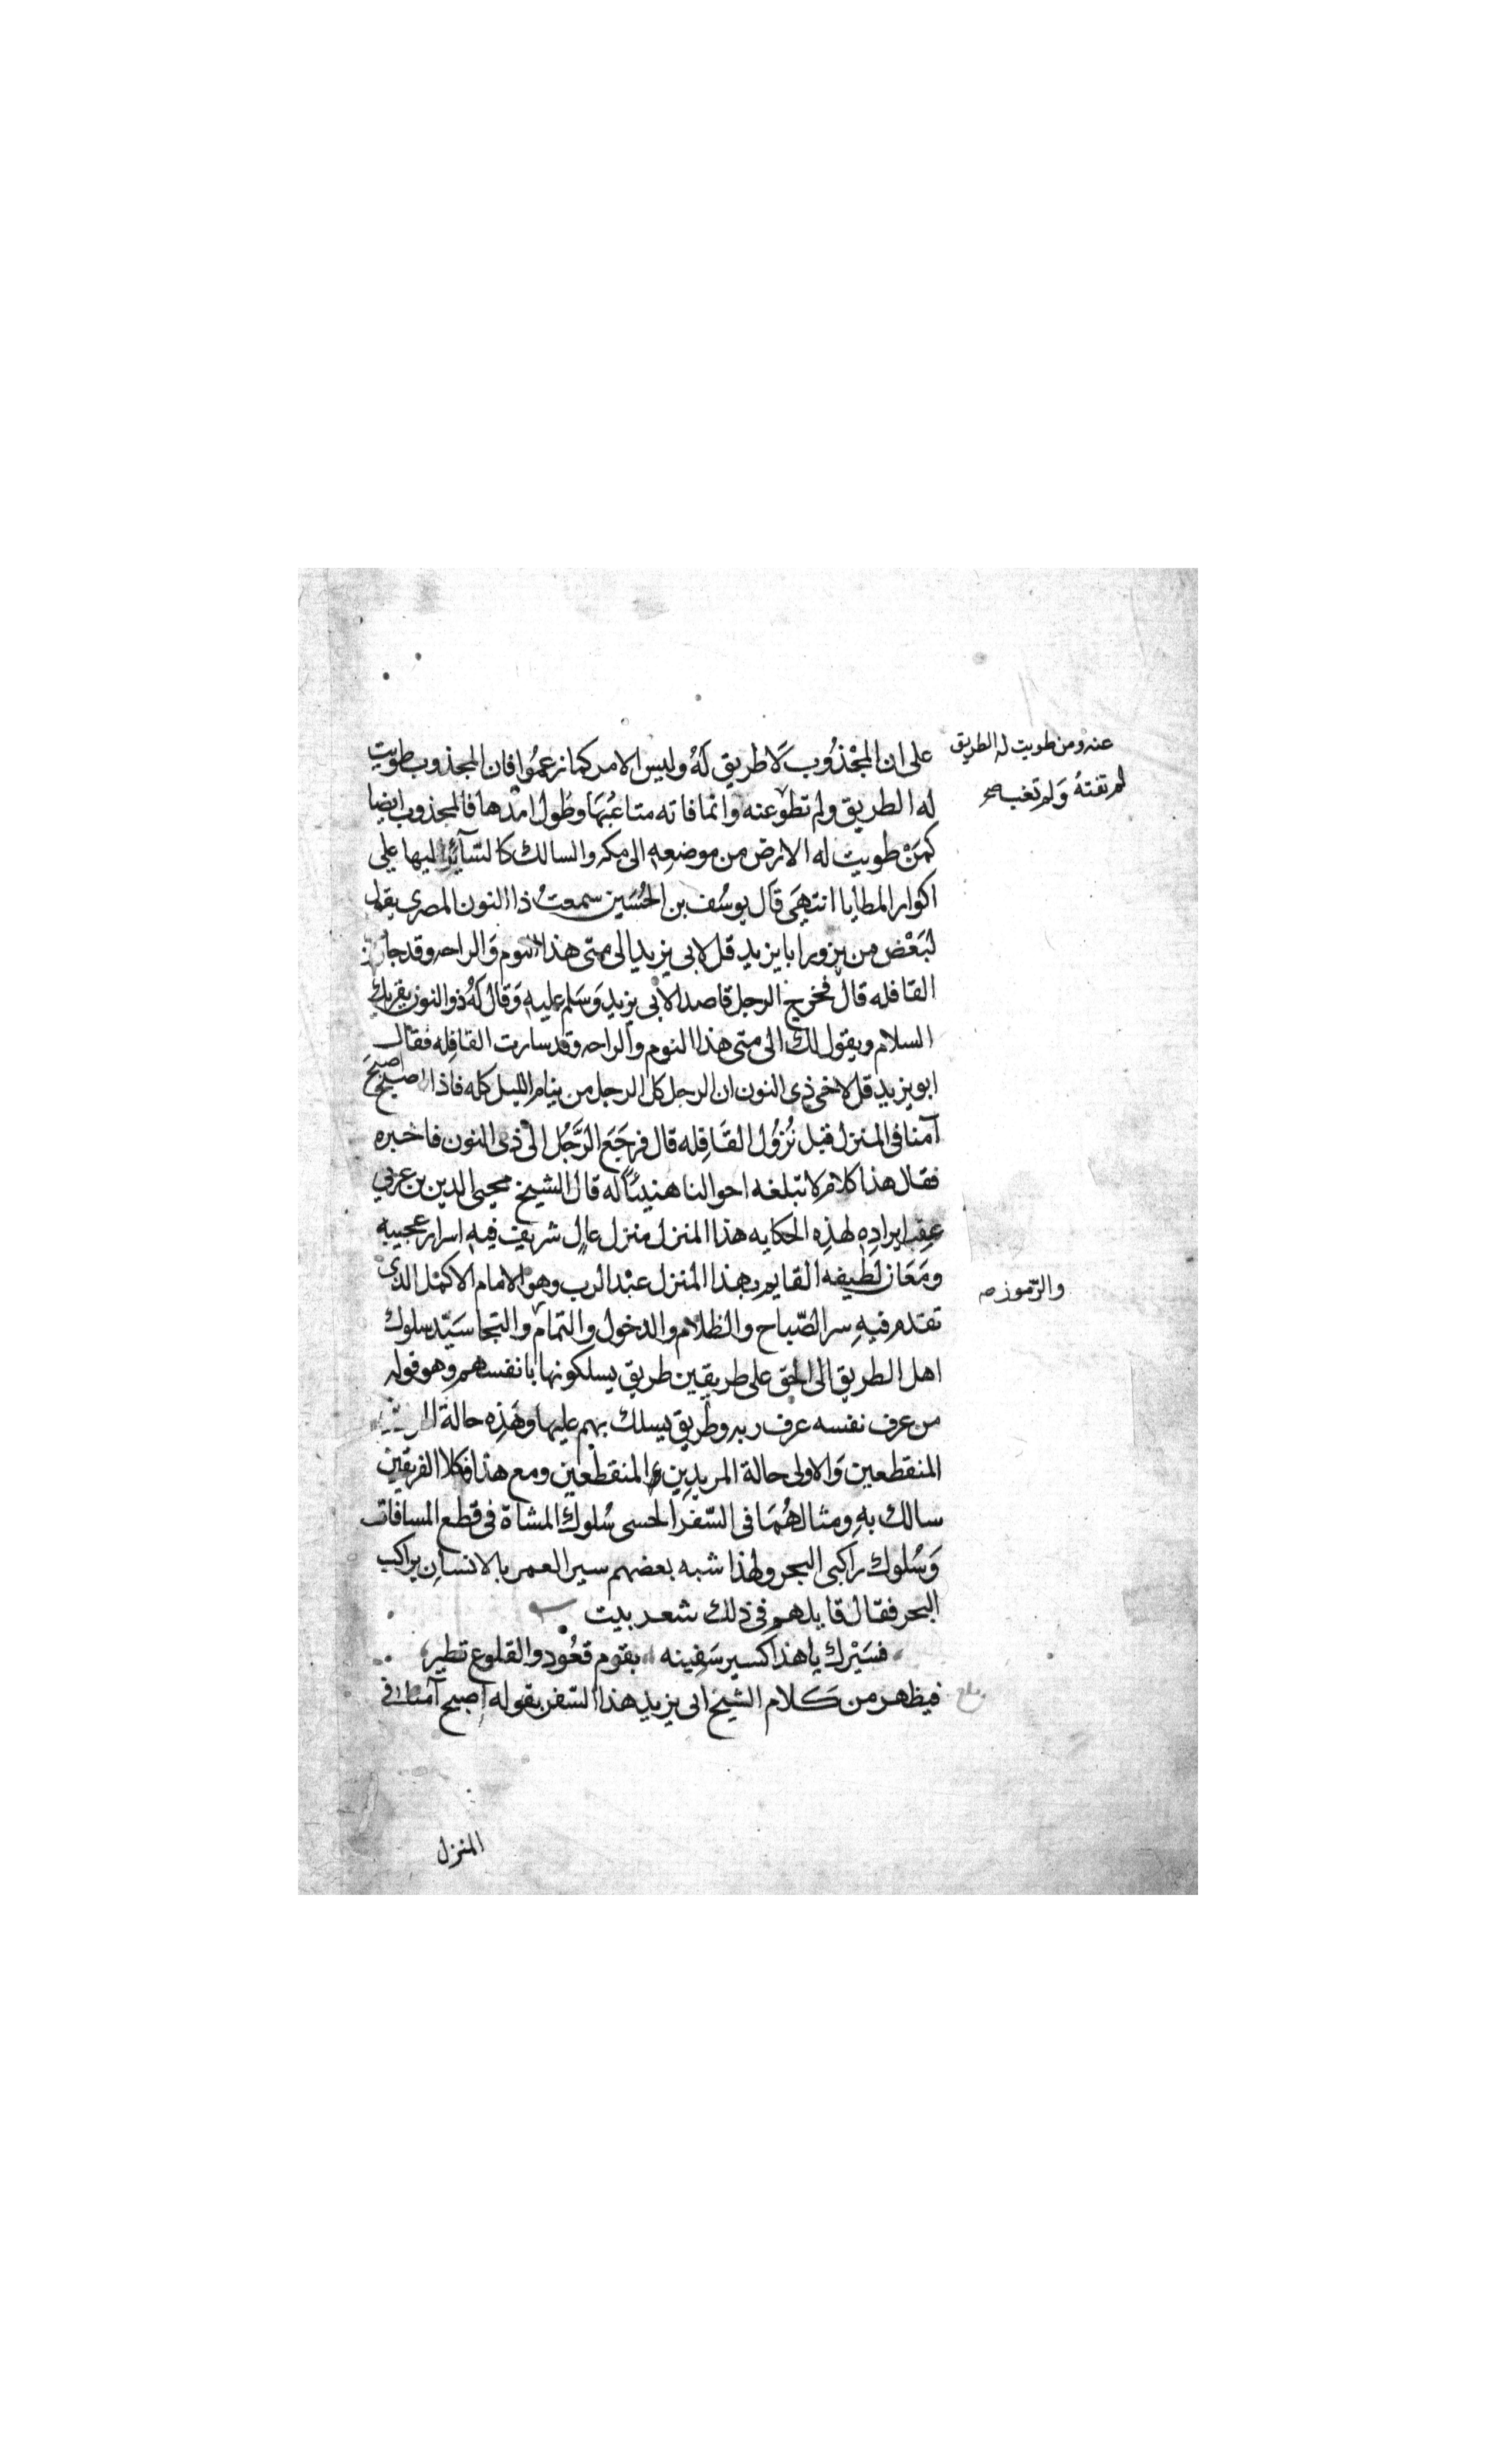 على ان المجْذُوب لَا طريق لَهُ وليس الامر كما زعمُوا فان المجذوب طويت
عنه ومن طويت له الطريق
لم تفتهُ وَلم تغب صح
له الطريق ولم تطو عنه وانما فاته متاعبُهَا وطُول امدها فالمجذوب ايضا
كمَنْ طويت له الارض من موضعه الى مكه والسالك كالسّآئر اليها على
اكوار المطايا انتهَى قَال يوسُف بن الحُسَين سمعتُ ذا النون المصرى يقول
لبَعْض من يزور ابا يزيد قل لابى يزيد الى متى هذا النوم وَالراحه وقد
القافله قال فخرج الرجل قاصدا لابى يزيد وَسَلم عليه وَقال لهُ ذو النون يقريك
السلام ويقول لك الى متى هذا النوم والراحه وقد سارت القافِله فقال
ابو يزيد قل لاخى ذى النون ان الرجل كل الرجل من ينام الليل كله فاذا اصبح اصبحَ
آمنا فى المنزل قبل نُزوُل القَافِله قال فرجَعَ الرَّجُل الى ذى النون فاخبره
فقال هذا كلام لا تبلغه احوالنا هنيئاً له قال الشيخ محيى الدين بن عربي
عقِب ايرادِه لهذِه الحكايه هذا المنزل منزل عالٍ شريف فيه اسرار عجيبه
ومَعَان لَطيفه القايم بهذا المنزل عبْد الرب وهو الامام الاكمْل الذى
والرّموز صح
تقدم فيهِ سر الصّباح والظلام والدخول والتمام والتجا سَيّد سلوك
اهل الطريق الى الحق على طريقين طريق يسلكونها بانفسهم وهو قوله
من عرف نفسه عرف ربه وطريق يسلك بهم عليها وهَذِه حالة
المنقطعين وَالاولى حالة المريدِين والمنقطعين ومع هذا فكلا الفريقين
سالك بهِ ومثالهُمَا فى السّفر الحسى سُلوك المشاة فى قطع المسافات
وَسُلوك راكبى البحر ولهذا شبه بعضهم سير العمر بالانسان براكب
البحر فقال قايلهم فى ذلك شعر بيت
فسَيْرك يا هذا كسير سَفِينه بقوم قعُود والقلوع تطير
فيظهر من كلام الشيخ ابى يزيد هذا السّفر بقوله اصبح آمنا فى
بلغ
المنزل